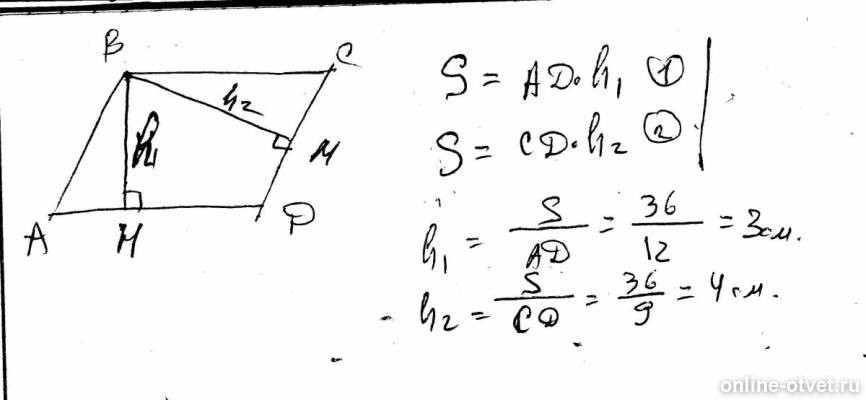 B
C
h₂
h₁
M
A
H
D
S = AD·h₁ ①
S = CD·h₂ ②
h₁ = S/AD = 36/12 = 3 см.
h₂ = S/CD = 36/9 = 4 см.
online-otvet.ru